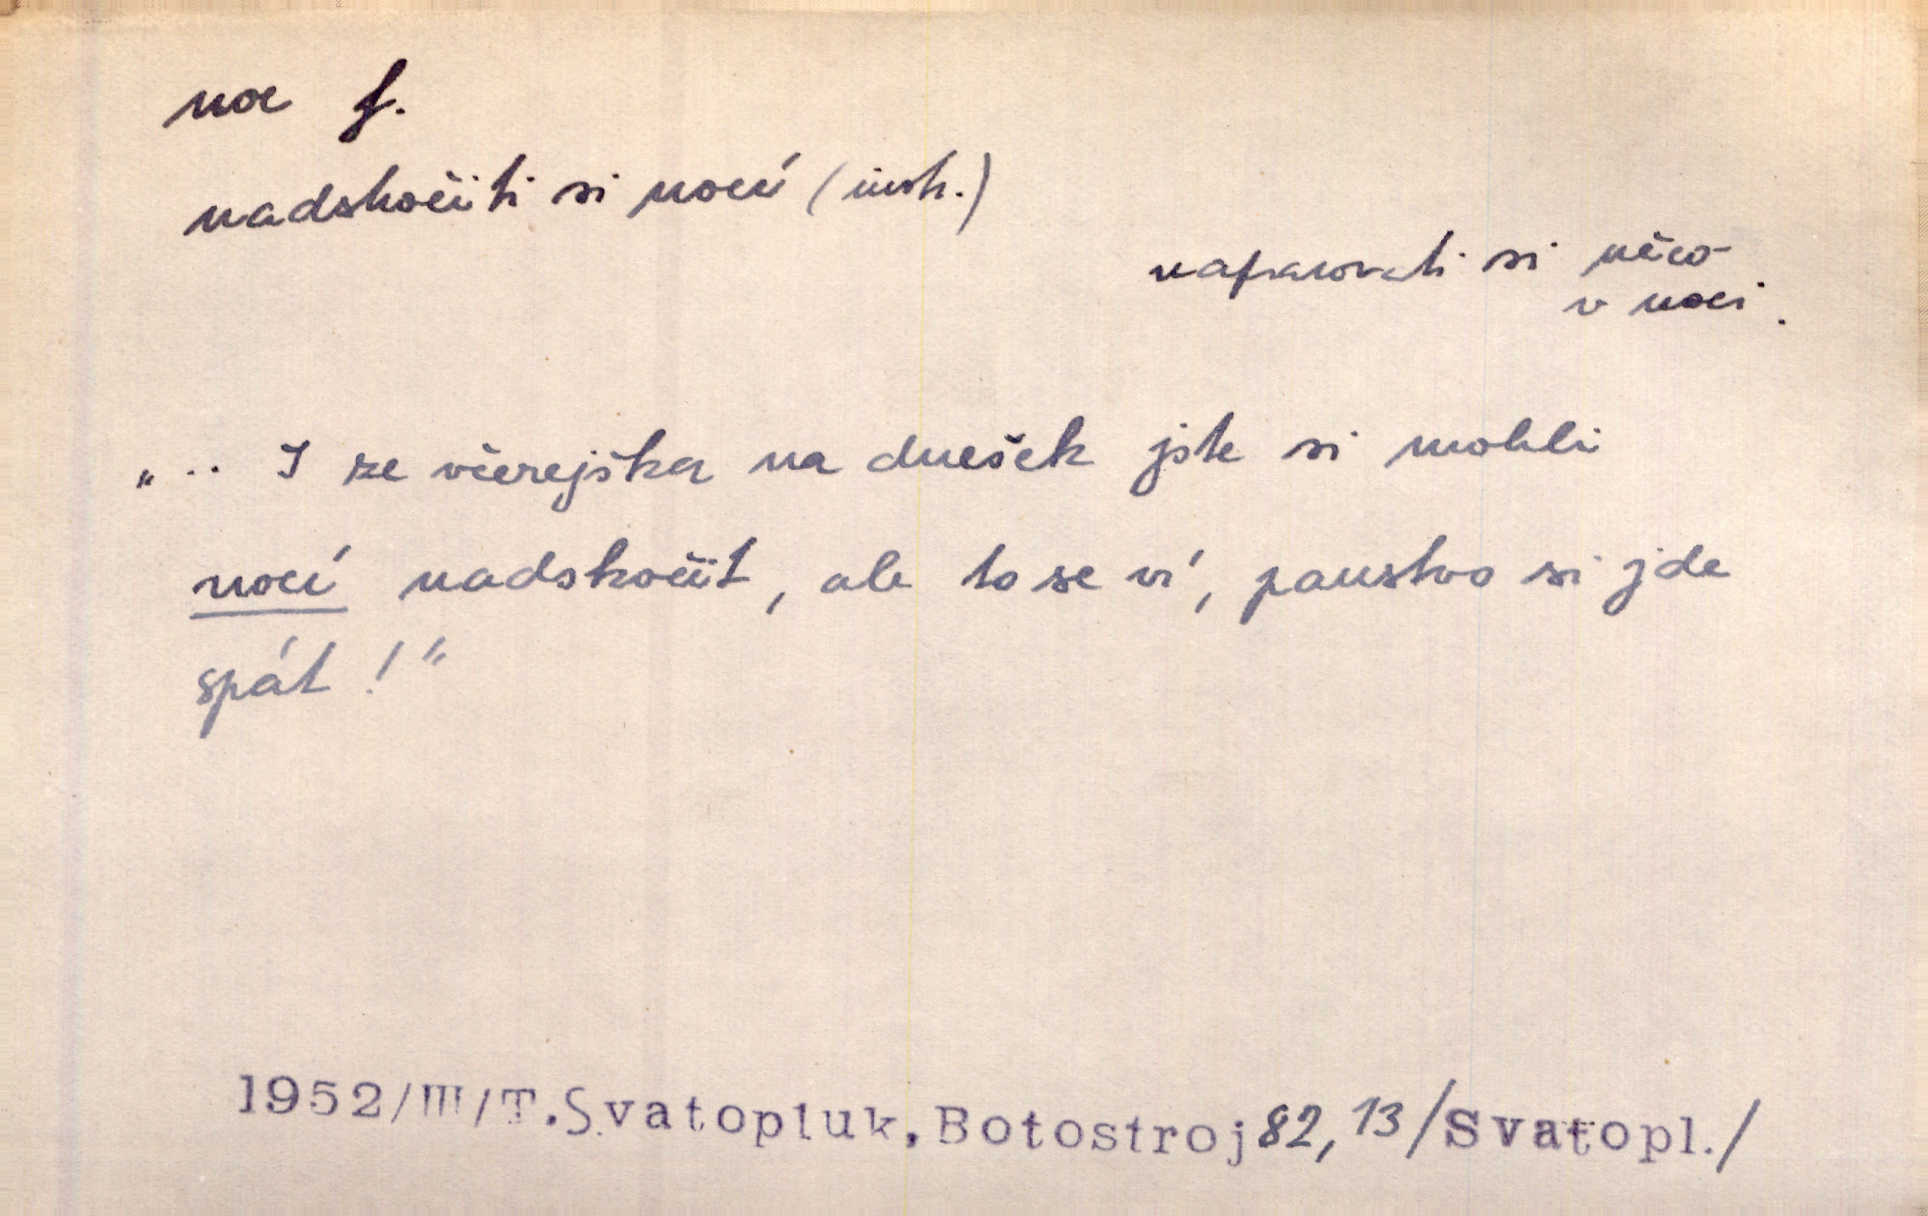 noc f.
nadskočiti si nocí (instr.)
napracovati si něco
v noci.
„.. I ze včerejška na dnešek jste si mohli
nocí nadskočit, ale to se ví, panstvo si jde
spát!"
1952/III/T.Svatopluk,Botostroj 82,13/Svatopl./